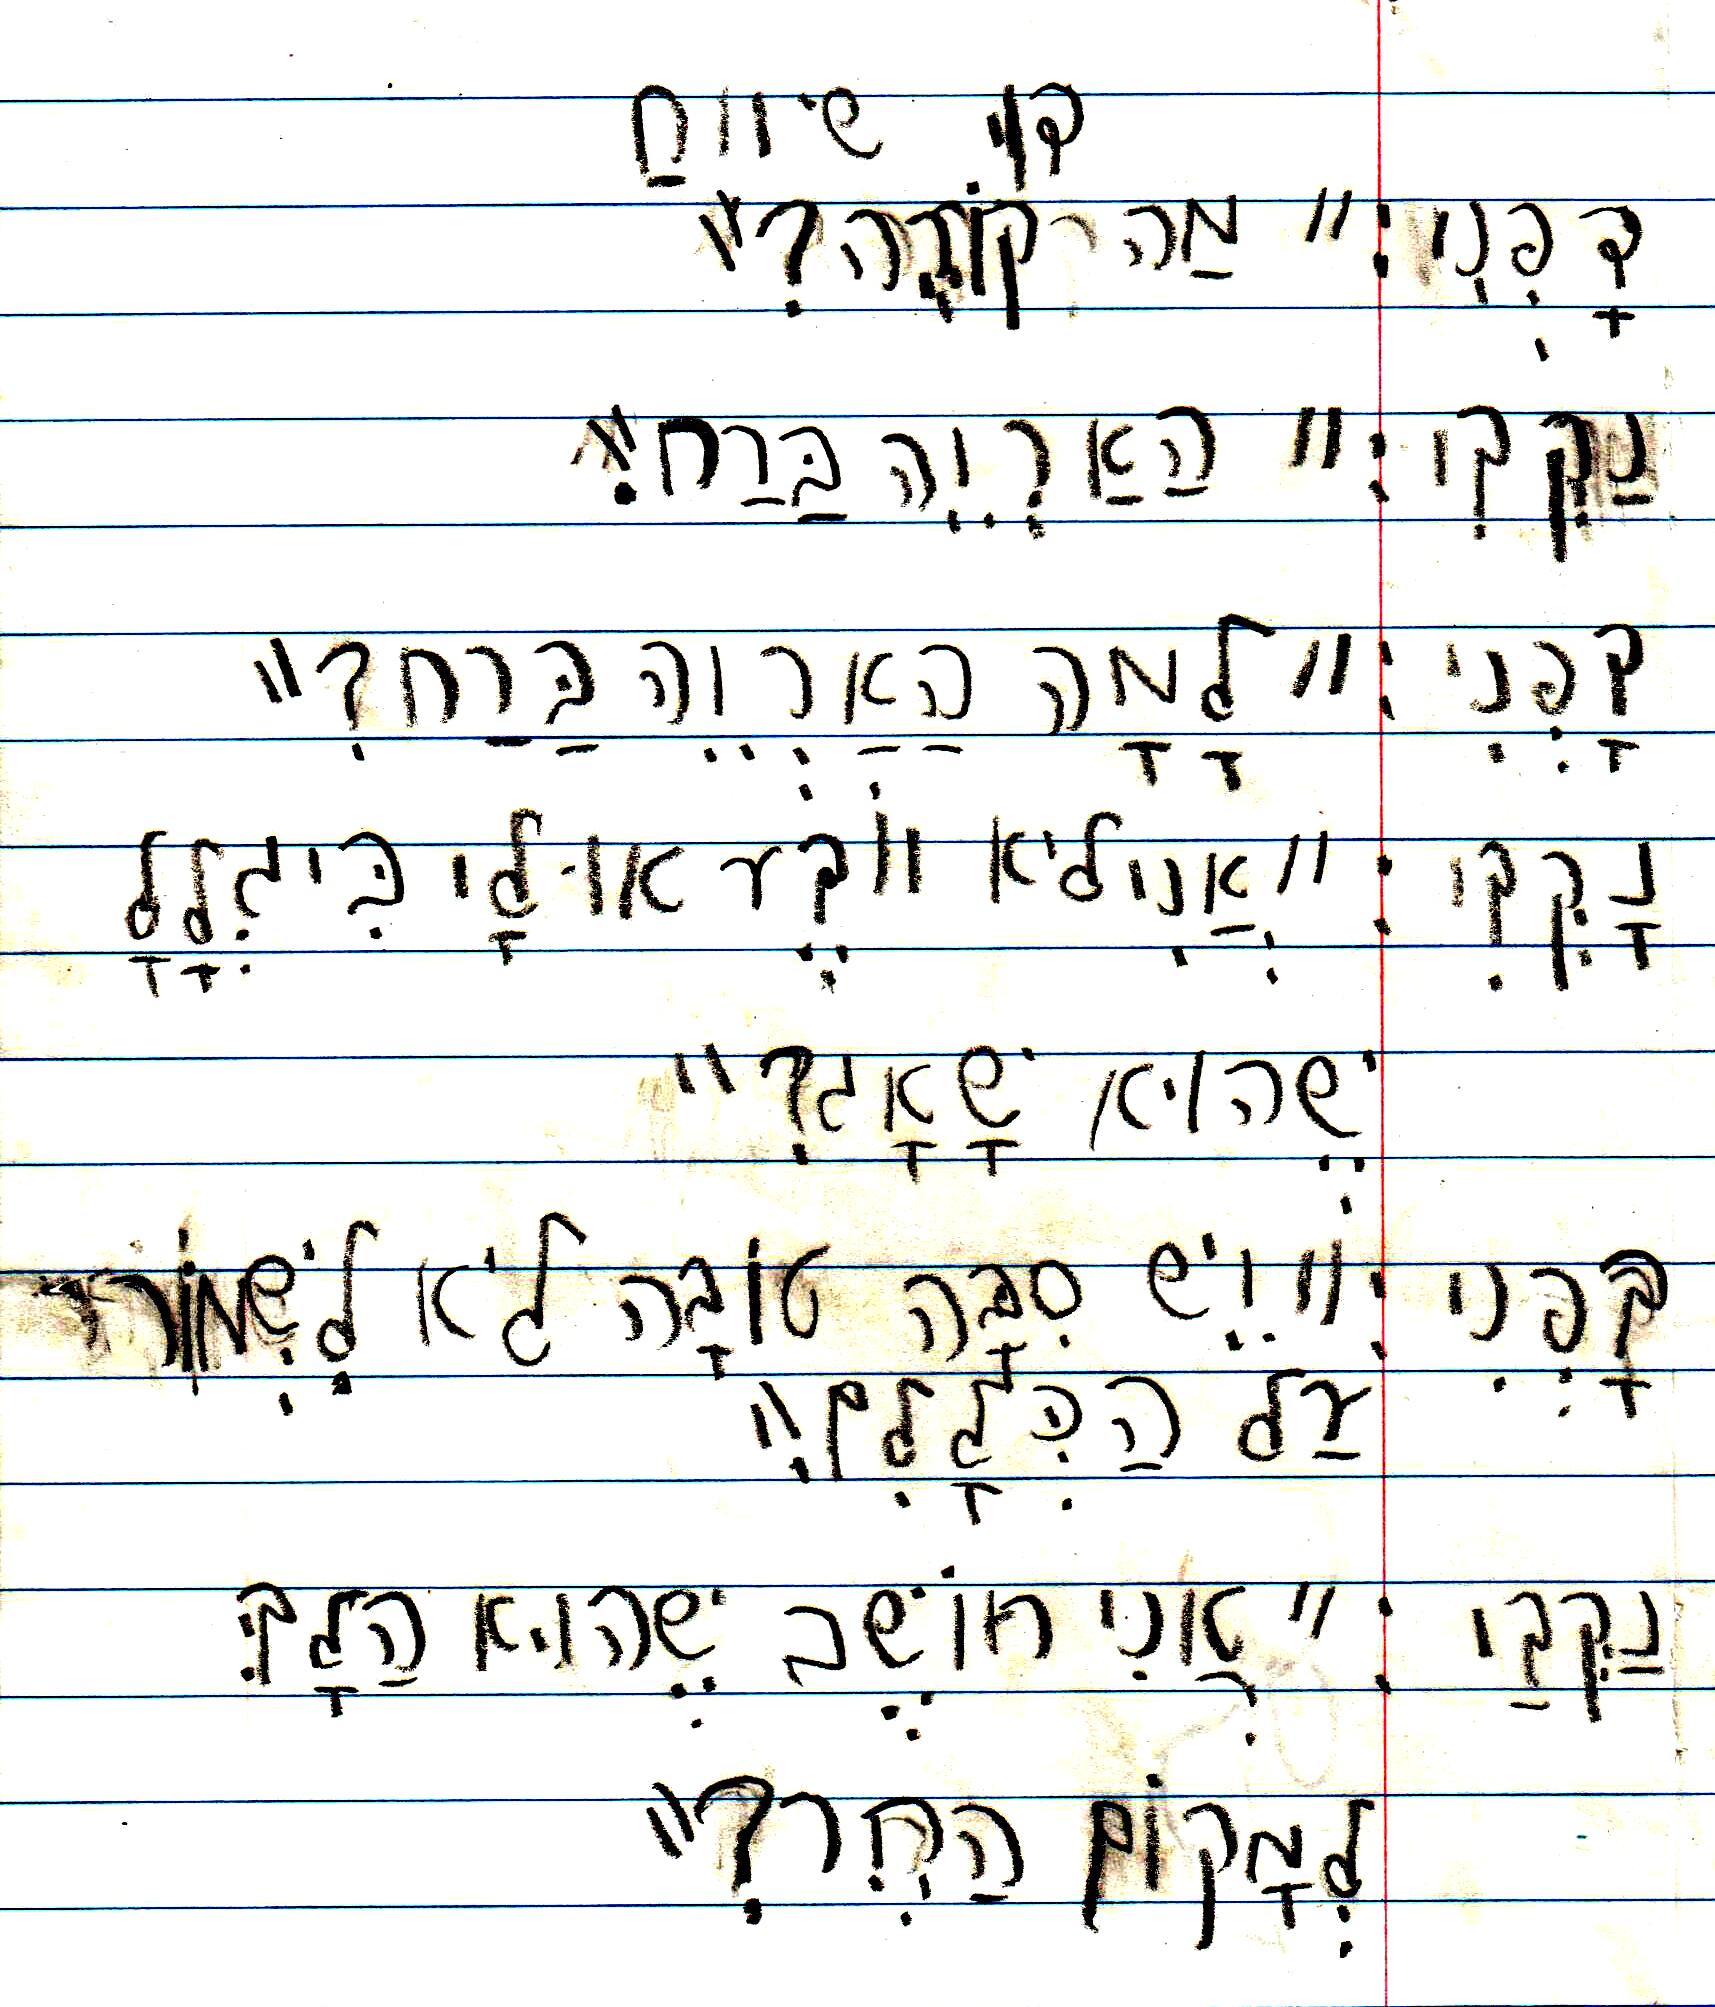 דו שיווח
דפני: "מה קורה?"
נקדי: "האריה ברח!"
דפני: "למה האריה ברח?"
נקדי: "אני לא יודע אולי ביגלל
שהוא שאג?"
דפני: "יש סבה טובה לא לשמור
על הכללים!"
נקדי: "אני חושב שהוא הלך
למקום החר?"